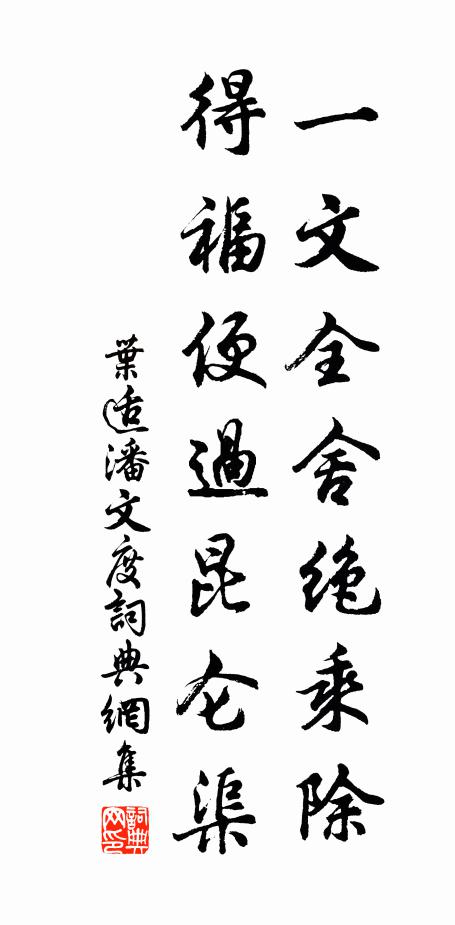 一文全舍绝乘除
得福便過昆仑渠
葉适潘文度詞典網集
詞典网印